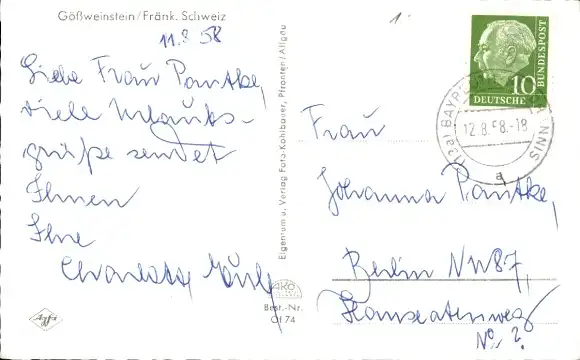 Gößweinstein/Fränk. Schweiz
11.8 58
Liebe Frau Pantke,
viele Urlaubs-
grüße sendet
Ihnen
Ihre
Charlotte
Eigentum u. Verlag Foto-Kohlbauer, Pfronten/Allgäu
AKO
Best.-Nr.
Gf 74
Agfa
1.
10
DEUTSCHE
BUNDESPOST
(13a) BAYR
12.8.58.-18
SINN
a
Frau
Johanna Pantke,
Berlin NW87,
Hansaatenweg
No. 2.